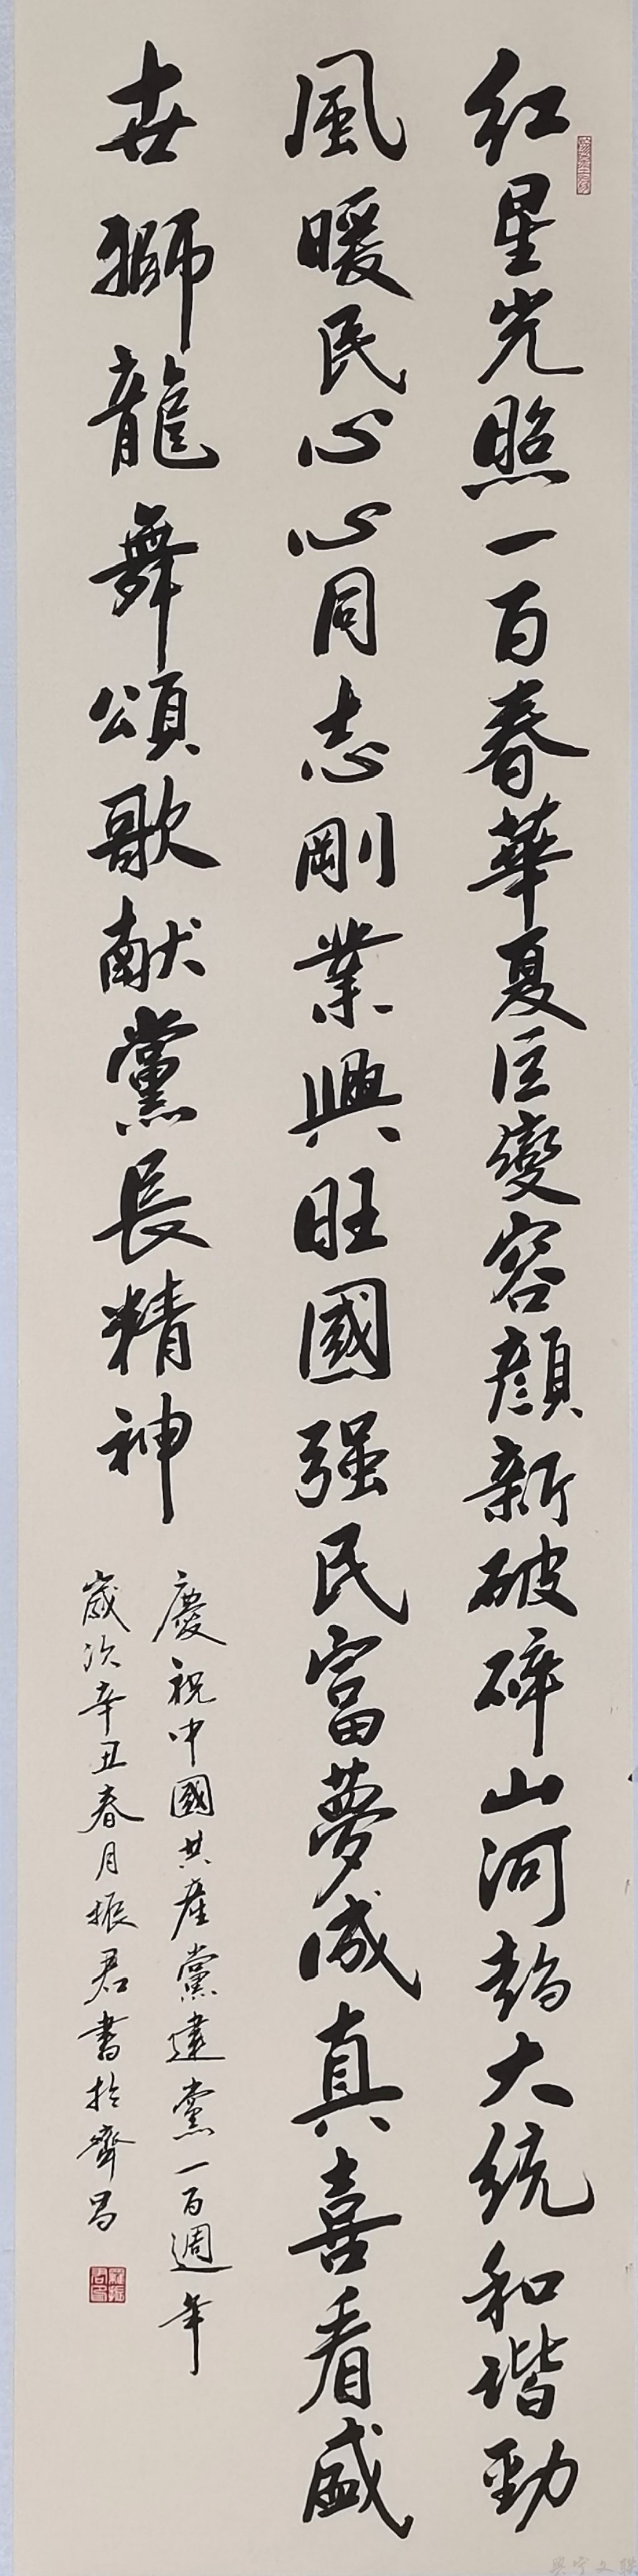 红星光照一百春華夏巨變容顔新破碎山河趋大统和谐勁
風暖民心心同志剛業興旺國强民富夢成真喜看盛
世獅龍舞頌歌献黨長精神
慶祝中國共產黨建黨一百週年
歲次辛丑春月振君書於齊昌
興宁文联